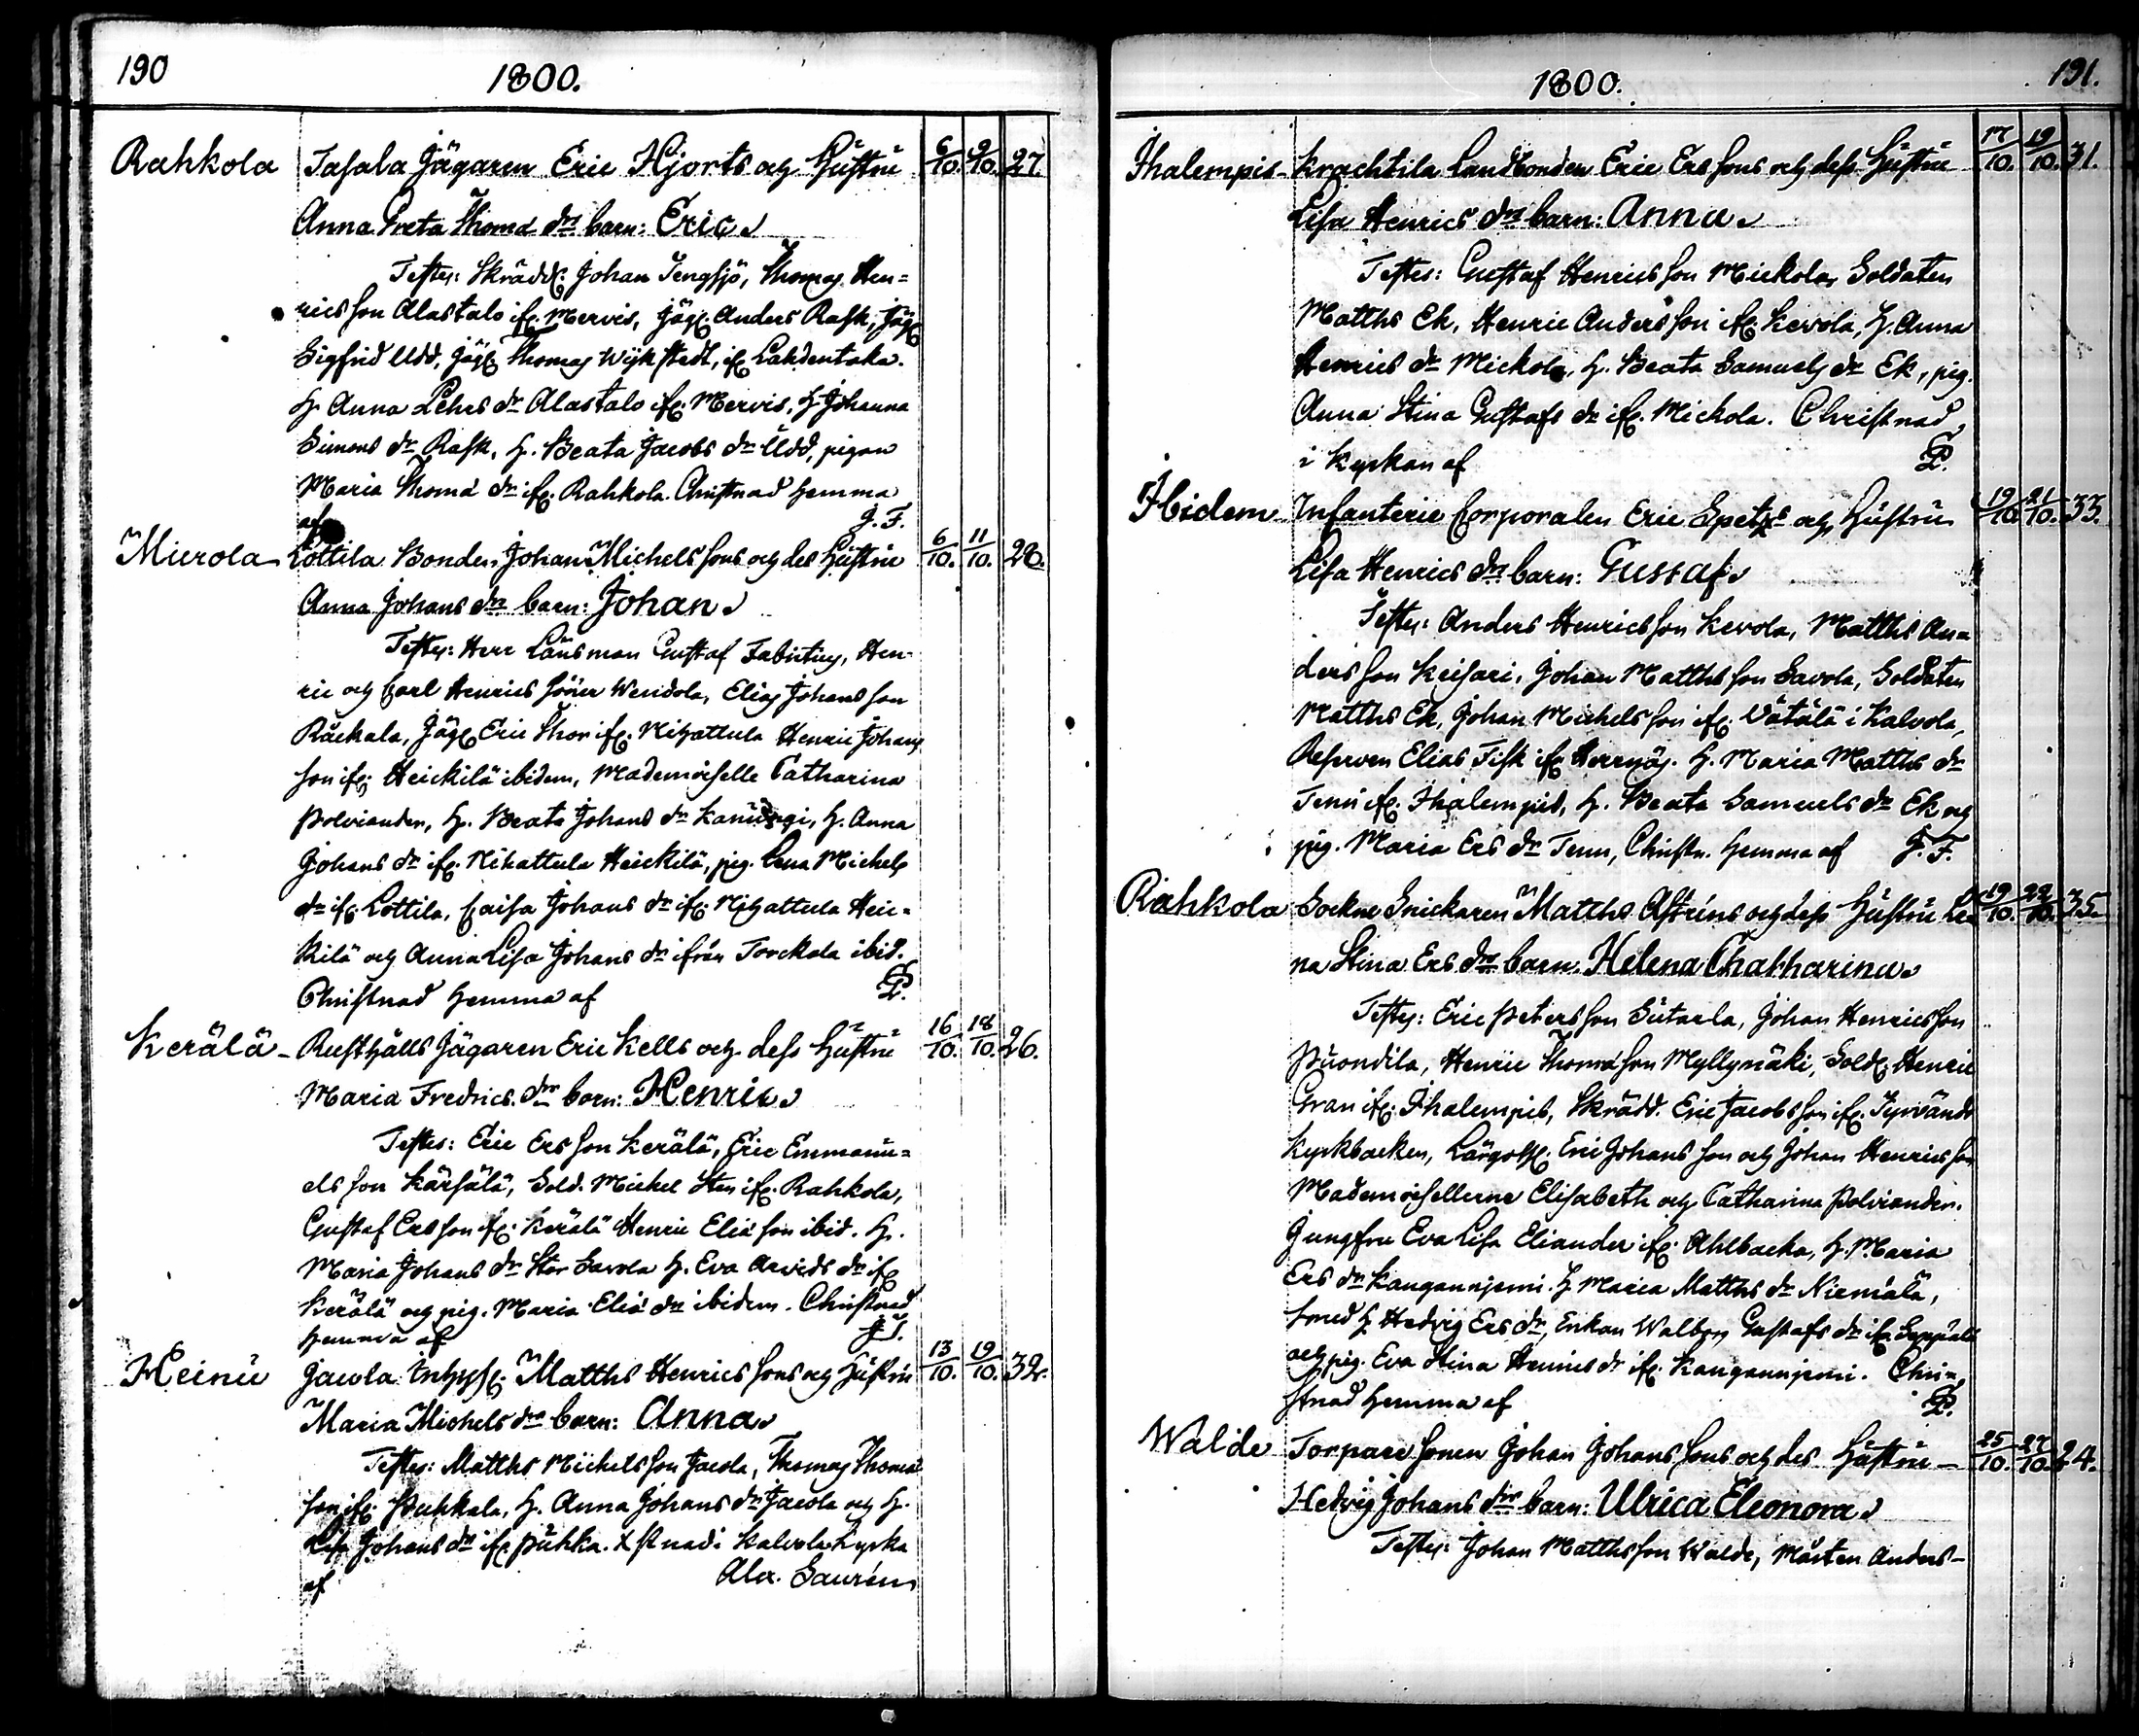 190
1800.
Rahkola Tasala Jägaren Eric Hjorts och Hustru 6/10. 9/10. 27.
Anna Greta Thomæ dr barn: Eric
Testes: Skrädd: Johan Tengsjö, Thomas Hen=
rics son Alastalo ifr. Mervis, Jäg. Anders Rask, Jäg.
Sigfrid Udd, Jäg. Thomas Wijkstedt, ifr. Lahdentaka.
H. Anna Pehrs dr Alastalo ifr. Mervis, H. Johanna
Simons dr Rask, H. Beata Jacobs dr Udd, pigan
Maria Thomæ dr ifr. Rahkola. Christnad hemma
af J. F.
Mierola Lottila Bonden Johan Michels sons och des Hustru 6/10. 11/10. 28.
Anna Johans dr barn: Johan
Testes: Herr Länsman Gustaf Fabritius, Hen-
ric och Carl Henrics söner Wendola, Elias Johans son
Räckala, Jäg. Eric Thor ifr. Nihattula Henric Johans
son ifr. Heickilä ibidem, Mademoiselle Catharina
Polviander, H. Beata Johans dr H. Anna
Johans dr ifr. Nihattula Heickilä, pig. Lena Michels
dr ifr. Lottila, Caisa Johans dr ifr. Nihattula Hei=
kilä och Anna Lisa Johans dr ifrån Torckola ibid.
Christnad hemma af P.
Kerälä Rusthålls Jägaren Eric Kells och dess Hustru 16/10. 18/10. 26.
Maria Fredrics dr barn: Henric
Testes: Eric Ers son Kerälä, Eric Emmanu=
els son Kärsälä, Sold. Michel Sten ifr. Rahkola,
Gustaf Ers son ifr. Kerälä Henric Eliæ son ibid. H.
Maria Johans dr Stor Savola H. Eva Arvids dr ifr.
Kerälä och pig. Maria Eliæ dr ibidem. Christnad
hemma af J. F.
Heinu Jacola Inhys. Matths Henrics sons och Hustru 13/10. 19/10. 32.
Maria Michels dr barn: Anna
Testes: Matths Michels son Jacola, Thomas Thomæ
son ifr. Puhkala, H. Anna Johans dr Jacola och H.
Lisa Johans dr ifr. Puhka. Xstnad i Kalvola Kyrka
af Alex. Saurén
1800.
191.
Ihalempis Krachtila Landbonden Eric Ers sons och dess Hustru 17/10. 19/10. 31.
Lisa Henrics dr barn: Anna
Testes: Gustaf Henrics son Mickola, Soldaten
Matths Ek, Henric Anders son ifr. Kevola, H. Anna
Henrics dr Mickola, H. Beata Samuels dr Ek, pig.
Anna Stina Gustafs dr ifr. Mickola. Christnad
i Kyrkan af P.
Ibidem Infanterie Corporalen Eric Spetss och Hustrun 19/10. 21/10. 33.
Lisa Henrics dr barn: Gustaf
Testes: Anders Henrics son Kevola, Matths An=
ders son Keisari, Johan Matths son Savola, Soldaten
Matths Ek, Johan Michels son ifr. Wätälä i Kalvola,
Reserven Elias Fisk ifr. H. Maria Matths dr
Tenn ifr. Ihalempis, H. Beata Samuels dr Ek och
pig. Maria Ers dr Tenn, Christn. hemma af J. F.
Rahkola Sockne Snickaren Matths Astréns och dess Hustru Le= 19/10. 22/10. 35.
na Stina Ers dr barn: Helena Chatharina
Testes: Eric Peters son Sutarla, Johan Henrics son
Puondila, Henric Thomæ son Myllymäki, Sold. Henric
Gran ifr. Ihalempis, Skrädd. Eric Jacobs son ifr. Tyrvändö
Kyrkbacken, Lärgoss. Eric Johans son och Johan Henrics son
Mademoisellerne Elisabeth och Catharina Polviander.
Jungfru Eva Lisa Eliander ifr. Ahlbacka, H. Maria
Ers dr Kangannjemi. H. Maria Matths dr Niemälä,
H. Hedvig Ers dr, Enkan Walborg Gustafs dr ifr. Seppälä
och pig. Eva Stina Henrics dr ifr. Kangannjemi. Chri=
stnad hemma af P.
Walde Torpare sonen Johan Johans sons och des Hustru 25/10. 27/10. 24.
Hedvig Johans dr barn: Ulrica Eleonora
Testes: Johan Matths son Walde, Mårten Anders-